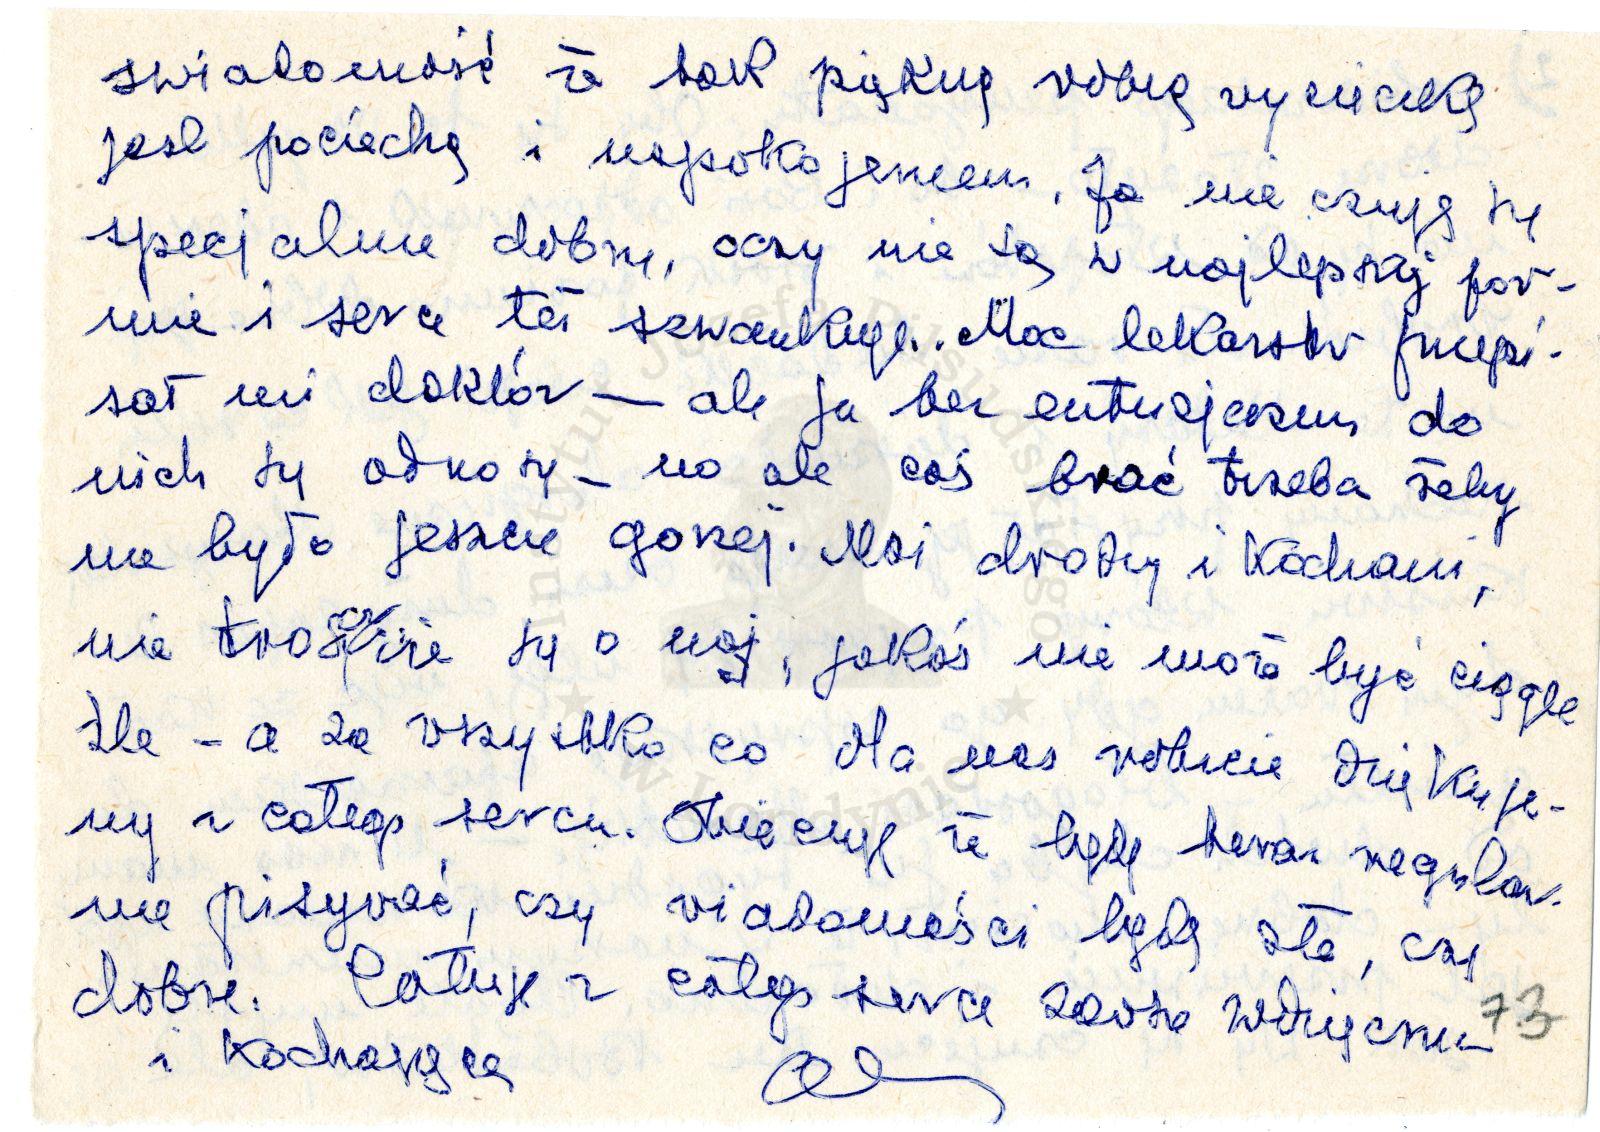 świadomość że tak piękną robią wycieczkę
jest pociechą i uspokojeniem. Ja nie czuję się
specjalnie dobrze, oczy nie są w najlepszej for-
mie i serce też szwankuje.. Moc lekarstw przepi-
sał mi doktór — ale ja bez entuzjazmu do
nich się odnoszę — no ale coś brać trzeba żeby
nie było jeszcze gorzej. Moi drodzy i Kochani,
nie troszczcie się o nas, jakoś nie może być ciągle
źle – a za wszystko co dla nas robicie dziękuje-
my z całego serca. Obiecuję że będę teraz regular-
nie pisywać, czy wiadomości będą złe, czy
dobre. Całuję z całego serca zawsze wdzięczna
i Kochająca
73
Instytut Józefa Piłsudskiego
w Londynie